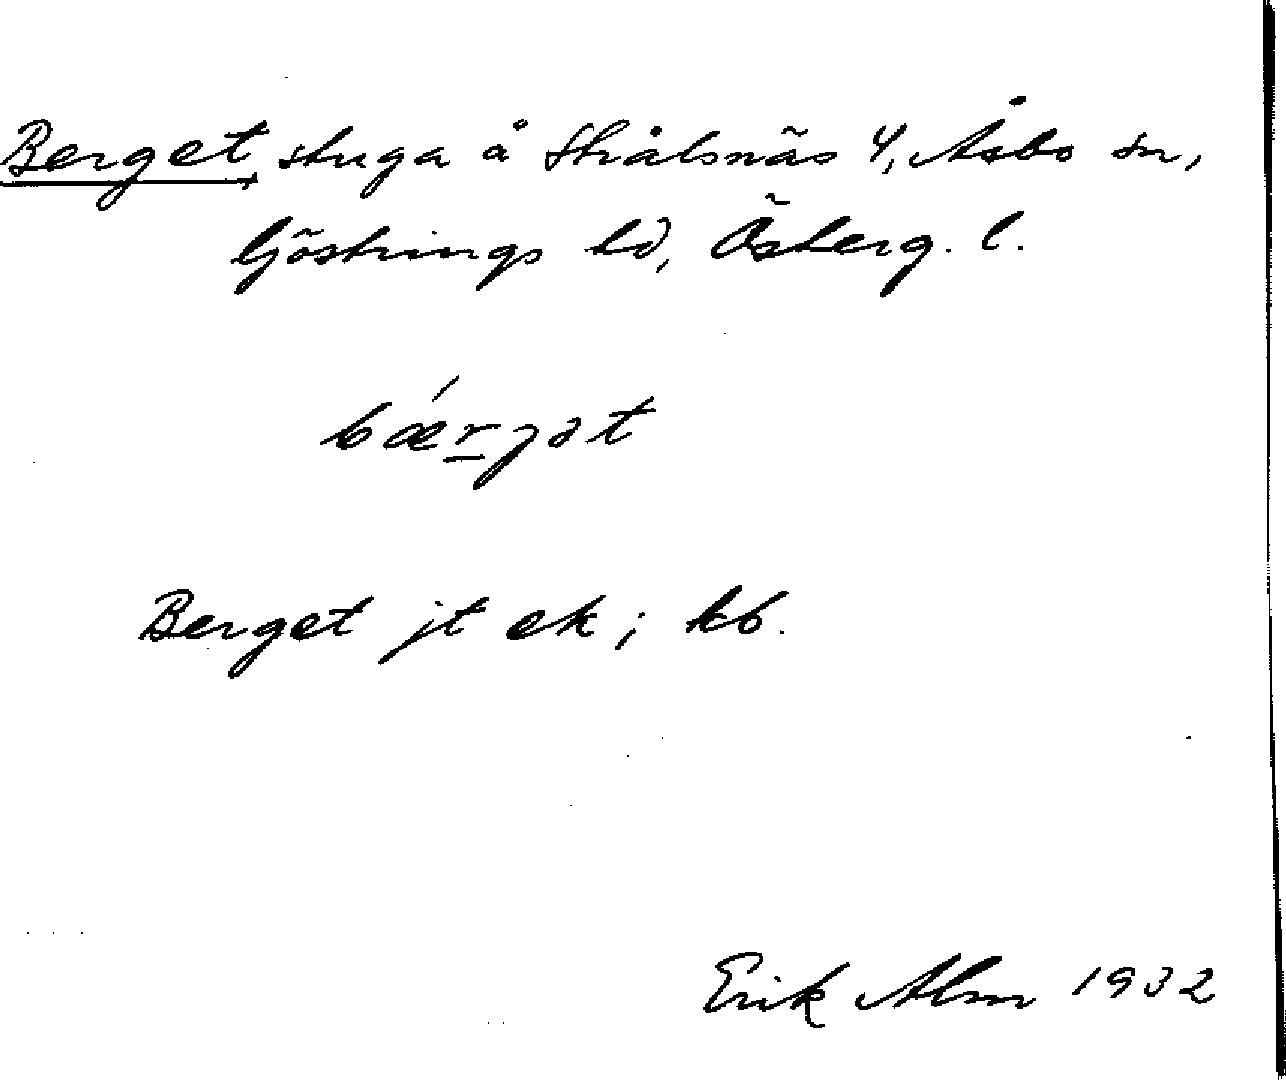 Berget, stuga å Strålsnäs 4, Åsbo sn,
Göstrings hd, Österg. l.
bǽrjət
Berget jt ek; kb.
Erik Alm 1932